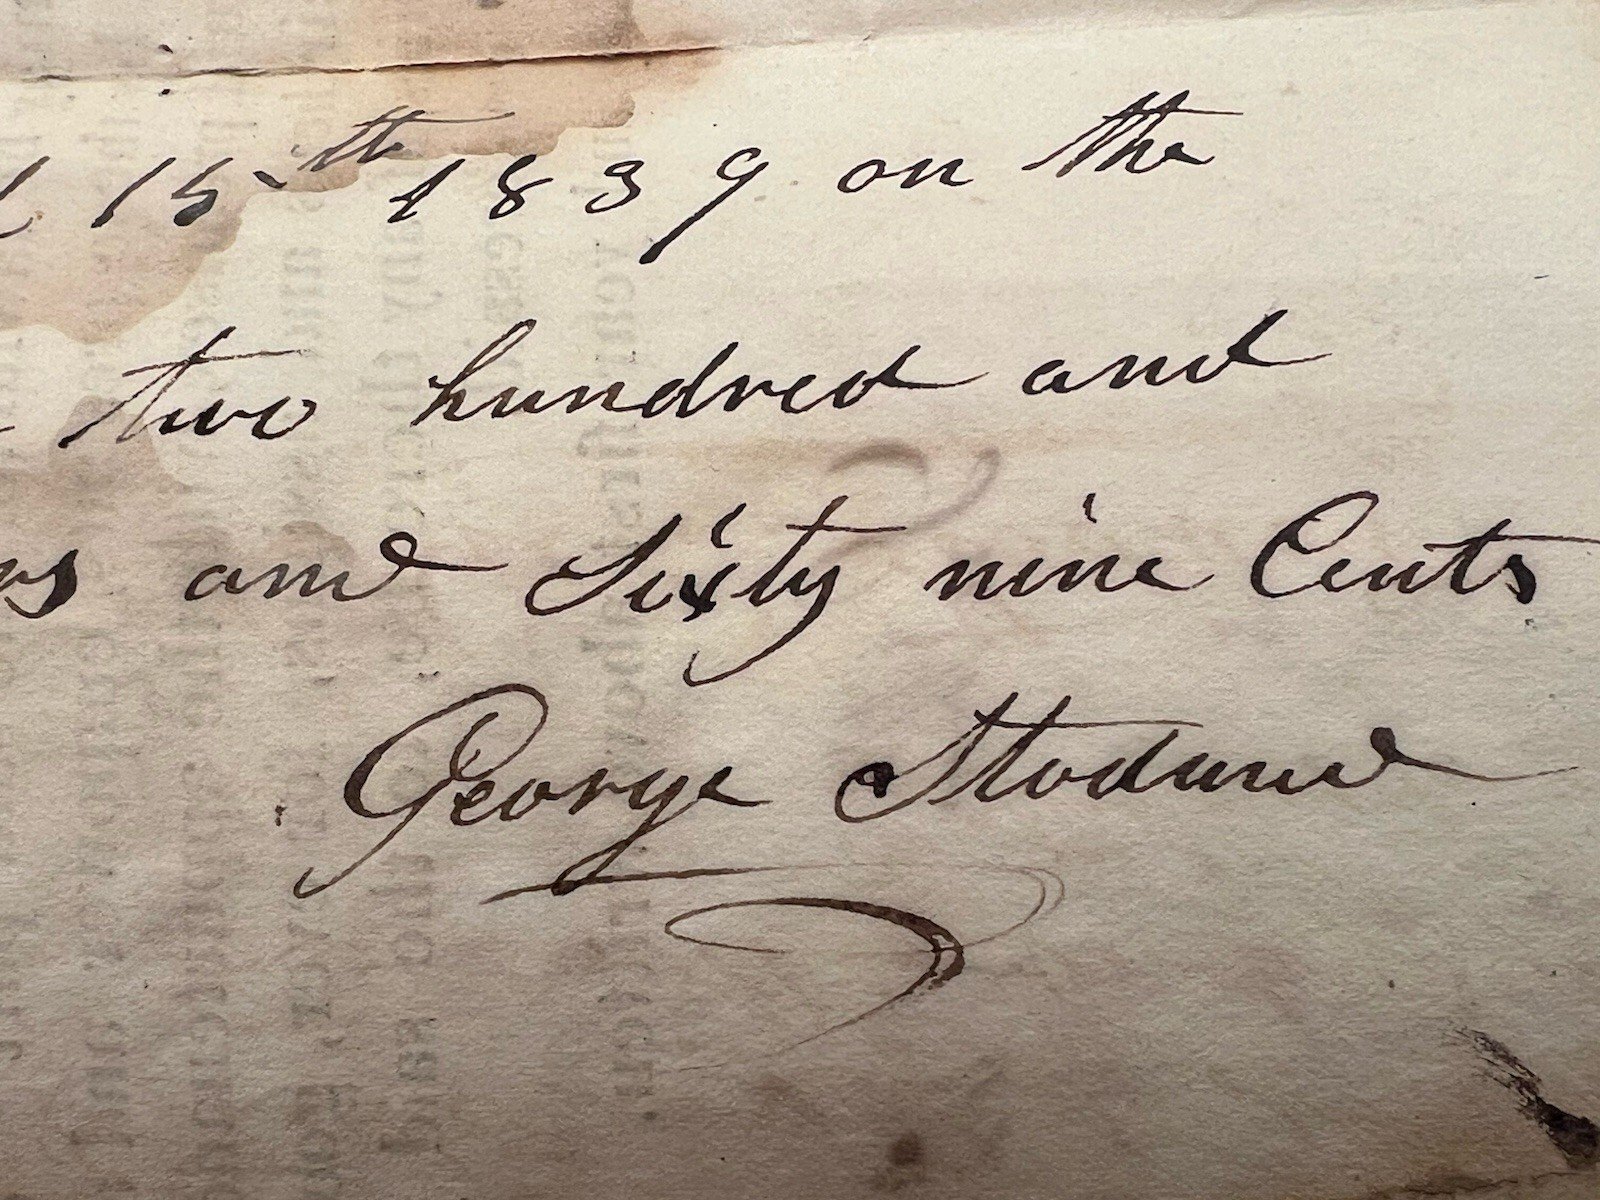 15th 1839 on the
two hundred and
and Sixty nine Cents
George